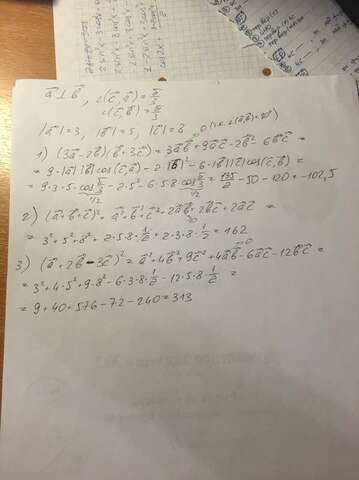 a⃗ ⊥ b⃗ , ∠(c⃗,a⃗)=π/3
∠(c⃗,b⃗)=π/3
|a⃗|=3, |b⃗|=5, |c⃗|=8
1) (3a⃗-2b⃗)(b⃗+3c⃗)= 3a⃗b⃗+9a⃗c⃗-2b⃗²-6b⃗c⃗=
=9·|a⃗||b⃗|cos(c⃗,a⃗)-2·|b⃗|²-6·|b⃗||c⃗|cos(c⃗,b⃗)=
=9·3·5·cos π/3 -2·5²-6·5·8 cos π/3 = 135/2 -50-120=-102,5
1/2 1/2
2) (a⃗+b⃗+c⃗)²= a⃗²+b⃗²+c⃗²+2a⃗b⃗+2b⃗c⃗+2a⃗c⃗ =
3²+5²+8²+2·5·8·1/2+2·3·8·1/2=162
3) (a⃗+2b⃗-3c⃗)²=a⃗²+4b⃗²+9c⃗²+4a⃗b⃗-6a⃗c⃗-12b⃗c⃗=
=3²+4·5²+9·8²-6·3·8·1/2-12·5·8·1/2 =
=9+40+576-72-240=313